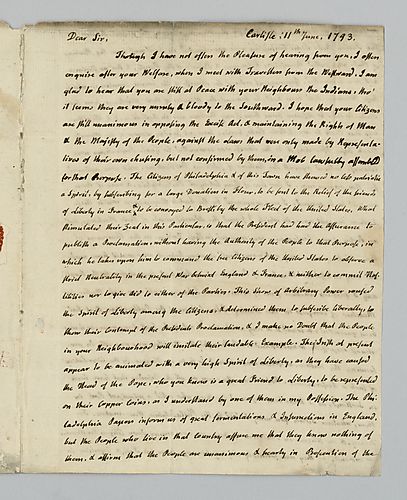 Dear Sir,
Carlisle: 11th June, 1793.
Though I have not often the Pleasure of hearing from you, I often
enquire after your Welfare, when I meet with Travellers from the Westward. I am
glad to hear that you are still at Peace with your Neighbours the Indians, tho'
it seems they are very unruly & bloody to the Southward. I hope that your Citizens
are still unanimous in opposing the Excise Act, & maintaining the Rights of Man
& the Majesty of the People, against the Laws that were only made by Representa-
tives of their own chusing, but not confirmed by them, in a Mob lawfully assembled
for that Purpose. The Citizens of Philadelphia & of this Town have shewed no less
a Spirit, by subscribing for a large Donation in Flour, to be sent to the Relief of the friends
of Liberty in France & to be convoyed to Brest, by the whole Fleet of the United States. What
stimulated their Zeal in this Particular, is that the President had had the Assurance to
publish a Proclamation without having the Authority of the People to that Purpose, in
which he takes upon him to command the free Citizens of the United States to observe a
strict Neutrality in the present War between England & France, & neither to commit Hos-
tilities nor to give Aid to either of the Parties. This Shew of Arbitrary Power roused
the Spirit of Liberty among the Citizens, & determined them to subscribe liberally, to
shew their Contempt of the Presidents Proclamation, & I make no Doubt that the People
in your Neighbourhood will imitate their laudable Example. The Irish at present
appear to be animated with a very high Spirit of Liberty, as they have caused
the Head of the Pope, who you know is a great Friend to Liberty, to be represented
on their Copper Coins, as I understand by one of them in my Possession. The Phi-
ladelphia Papers inform us of great fermentations & Insurrections in England,
but the People who live in that Country assure me that they know nothing of
them, & affirm that the People are unanimous & hearty in Prosecution of the